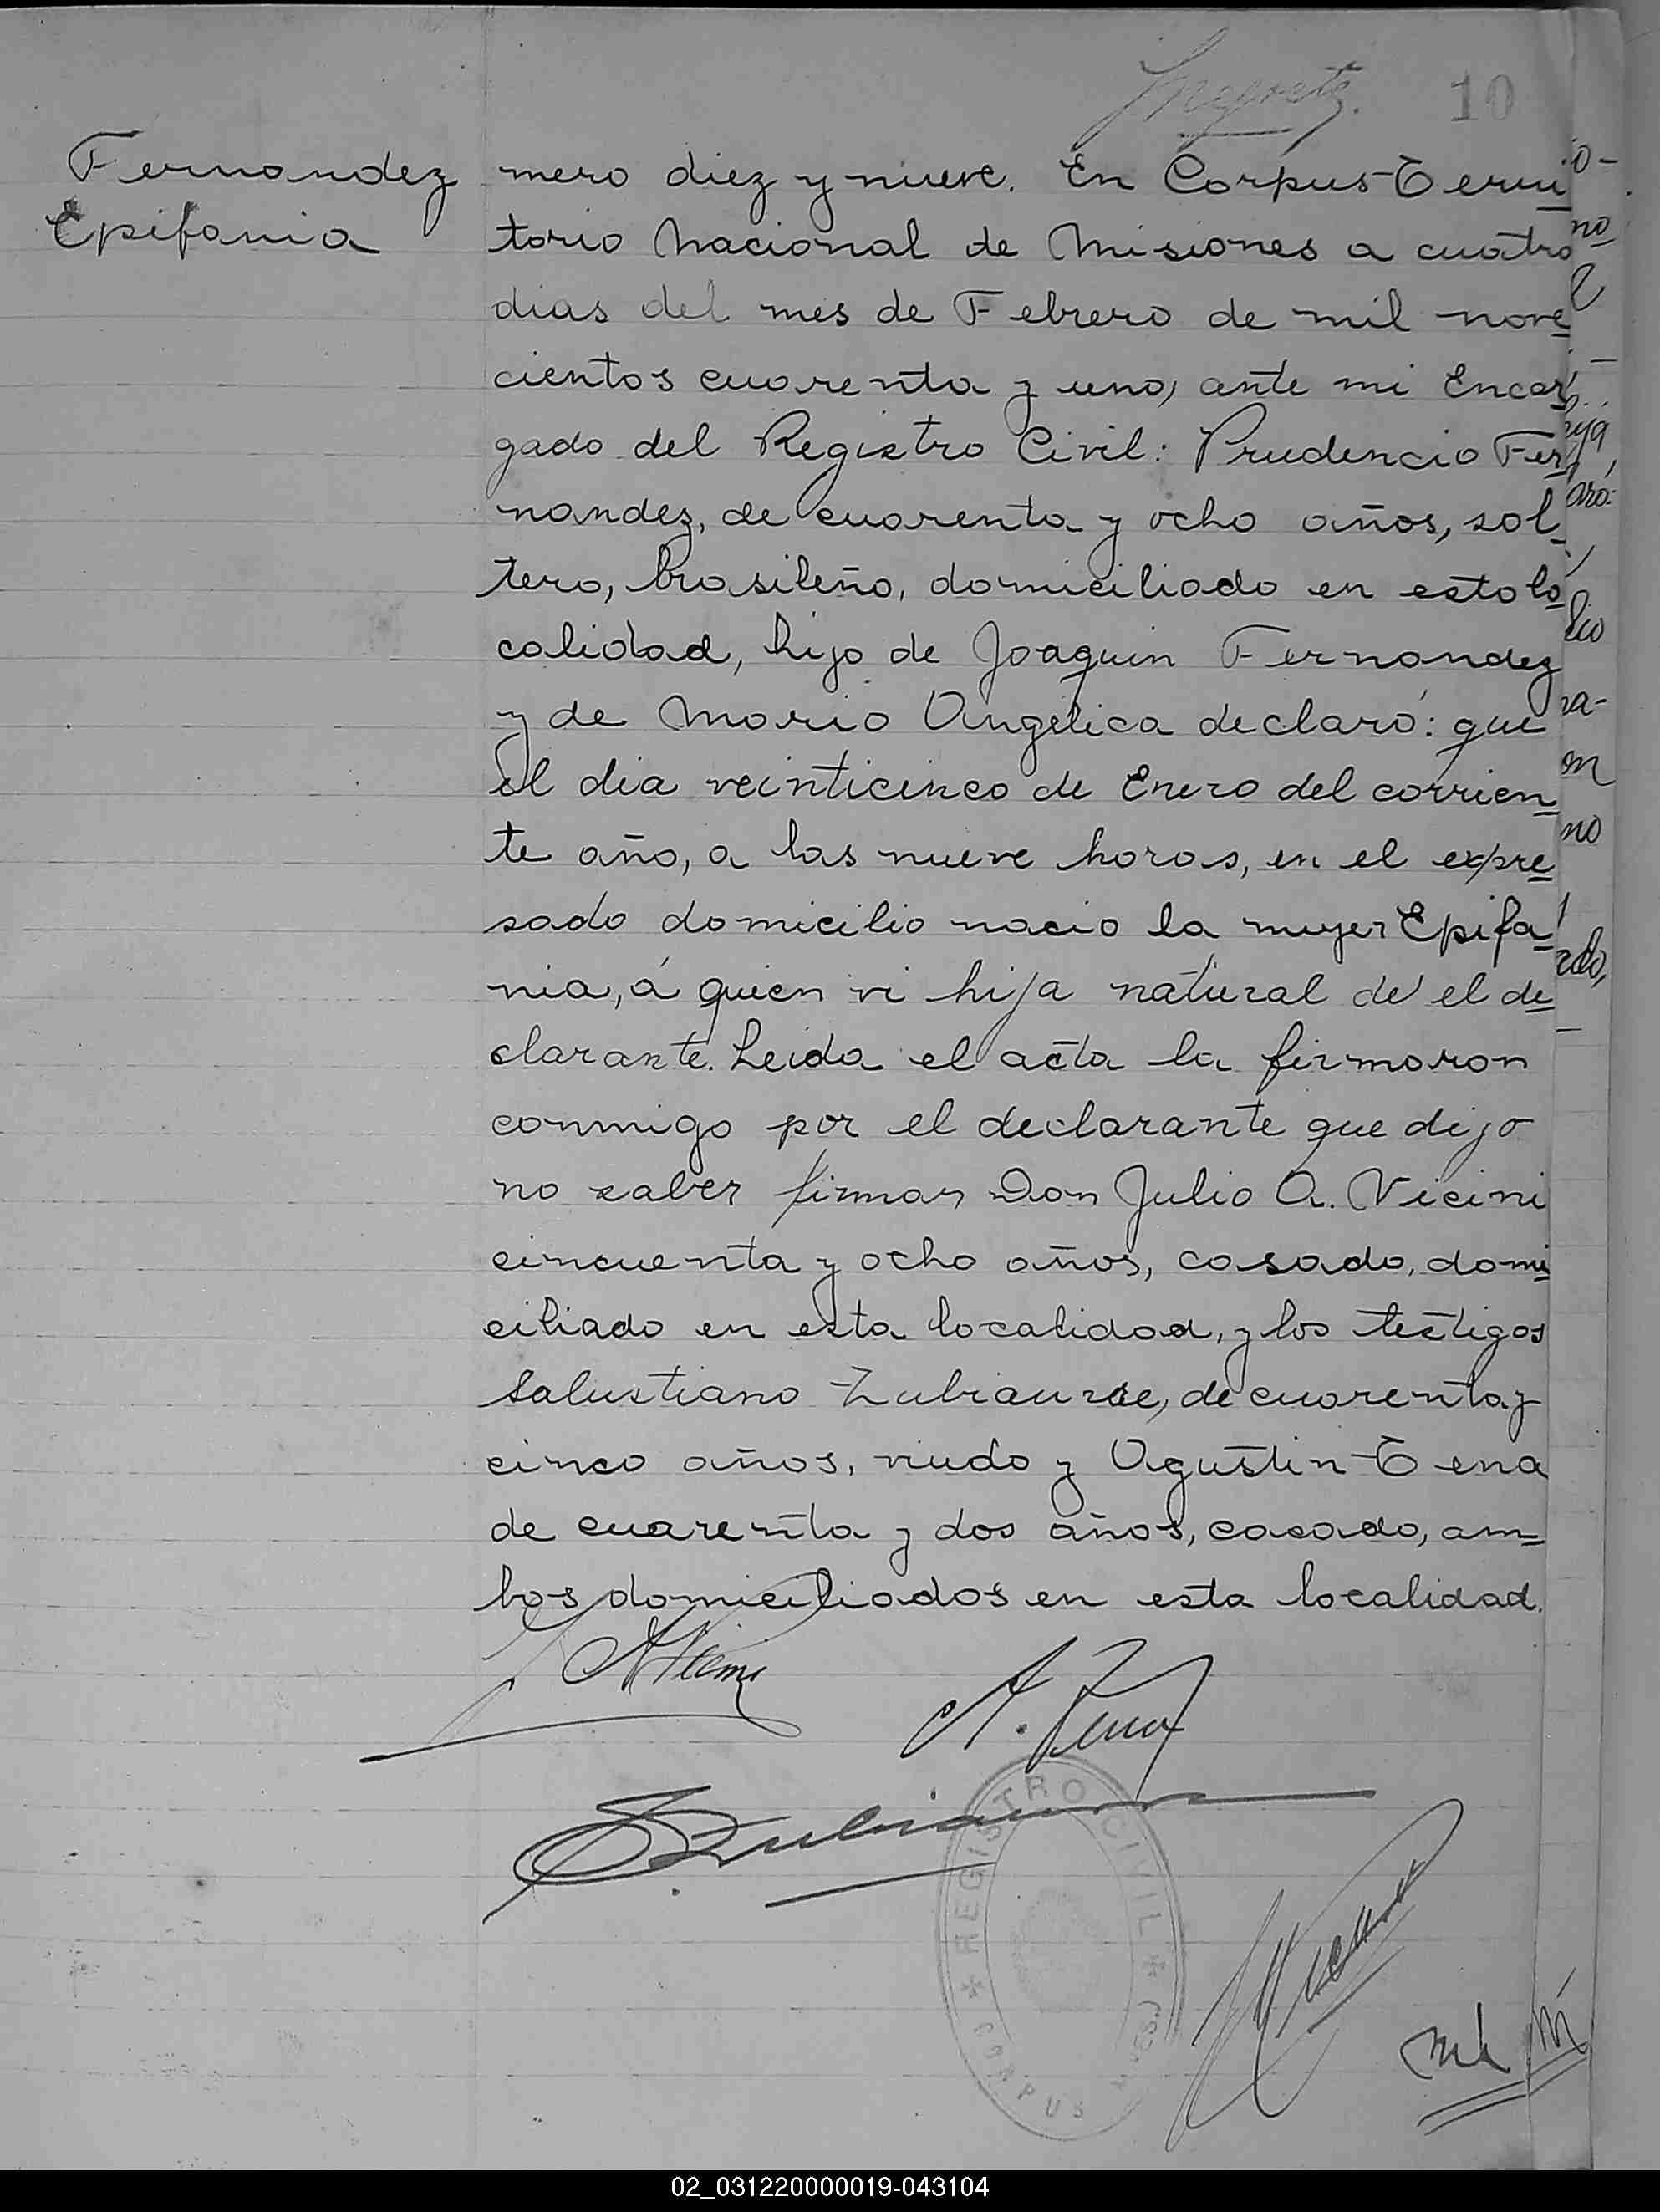 10
Fernandez
Epifania
mero diez y nueve. En Corpus-Terri
torio Nacional de Misiones a cuatro
dias del mes de Febrero de mil nove
cientos cuarenta y uno, ante mi Encar
gado del Registro Civil: Prudencio Fer
nandez, de cuarenta y ocho años, sol
tero, brasileño, domiciliado en esta lo
calidad, hijo de Joaquin Fernandez
y de Maria Angélica declaró: que
el dia veinticinco de Enero del corrien
te año, a las nueve horas, en el expre
sado domicilio nacio la mujer Epifa
nia, á quien vi hija natural de el de
clarante. Leida el acta la firmaron
conmigo por el declarante que dijo
no saber firmar Don Julio A. Vicini
cincuenta y ocho años, casado, domi
ciliado en esta localidad, y los testigos
Salustiano Zubiaurre, de cuarenta y
cinco años, viudo y Agustin Tena
de cuarenta y dos años, casado, am
bos domiciliados en esta localidad.
A. Tena
REGISTRO CIVIL
CORPUS
02_031220000019-043104